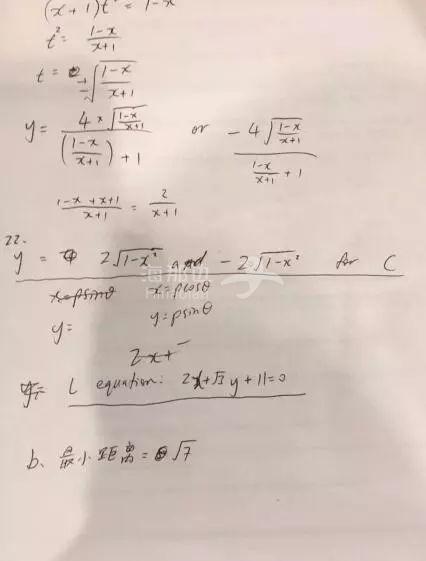 (x+1)t² = 1-x
t² = \frac{1-x}{x+1}
t = ± \sqrt{\frac{1-x}{x+1}}
y = \frac{4 × \sqrt{\frac{1-x}{x+1}}}{\left(\frac{1-x}{x+1}\right)+1} or \frac{-4\sqrt{\frac{1-x}{x+1}}}{\frac{1-x}{x+1}+1}
\frac{1-x+x+1}{x+1} = \frac{2}{x+1}
22.
y = 2\sqrt{1-x²} and -2\sqrt{1-x²} for C
x=ρsinθ x=ρcosθ
y= y=ρsinθ
2x+
L equation: 2x+√3 y+11=0
b、最小距离=√7
海那边